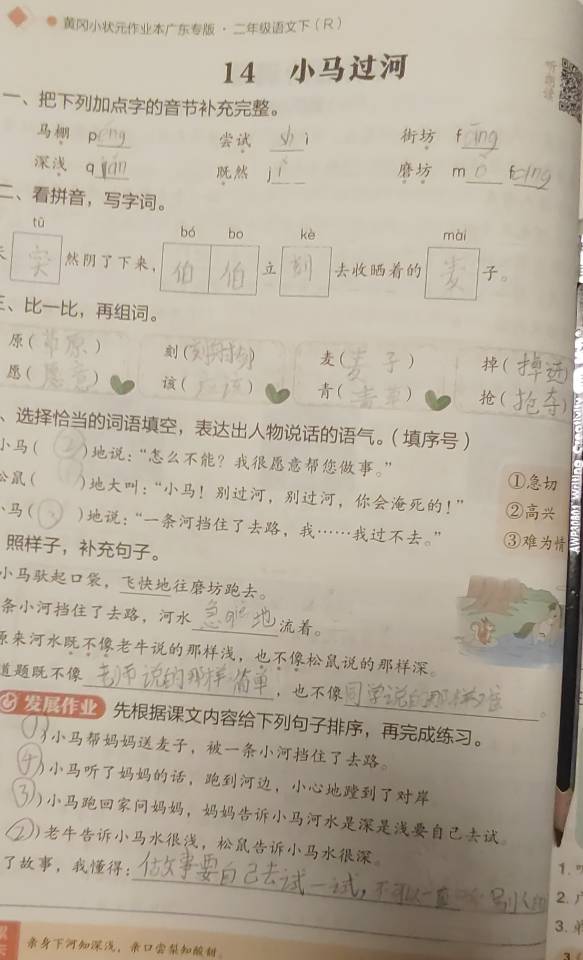 黄冈小状元作业本广东专版·二年级语文下（R）
14 小马过河
一、把下列加点字的音节补充完整。
马棚 p eng 尝试 sh i 街坊 f ang
深浅 q ian 既然 j i 磨坊 m o f ang
二、看拼音，写字词。
tū bó bo kè mài
突 然阴了下来， 伯 伯 立 刻 去收晒着的 麦 子。
三、比一比，再组词。
原( 草原 ) 刻( ) 麦( 麦子 ) 掉( )
愿( 愿意 ) 该( 应该 ) 青( 青草 ) 抢( 抢夺 )
、选择恰当的词语填空，表达出人物说话的语气。（填序号）
小马( ② )地说：“怎么不能？我很愿意帮您做事。”
松鼠( ① )地大叫：“小马！别过河，别过河，你会淹死的！”
小马( ③ )地说：“一条河挡住了去路，我……我过不去。”
①急切
②高兴
③为难情
照样子，补充句子。
小马驮起口袋，飞快地往磨坊跑去。
条小河挡住了去路，河水 地 流着。
原来河水既不像老牛说的那样浅，也不像松鼠说的那样深。
道题既不像 老师说的那样简单 ，也不像 同学说的那样难 。
发展作业 先根据课文内容给下列句子排序，再完成练习。
(1)小马帮妈妈送麦子，被一条小河挡住了去路。
(4)小马听了妈妈的话，跑到河边，小心地蹚到了对岸
(3)小马跑回家问妈妈，妈妈告诉小马河水是深是浅要自己去试
(2)老牛告诉小马水很浅，松鼠告诉小马水很深。
了故事，我懂得： 做文事要自己去试一试，不可以一直
亲身下河知深浅，亲口尝梨知酸甜
1.
2.
3.